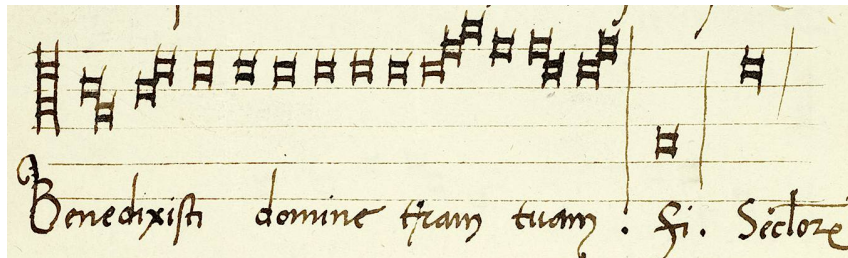 Benedixisti domine tr̃am tuam : fi. Seclorẽ